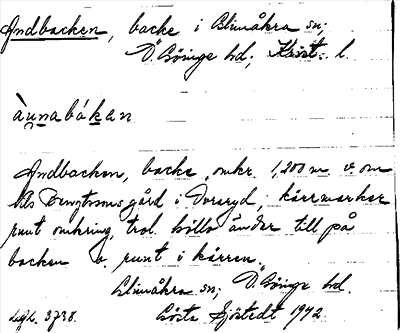 Andbacken, backe i Glimåkra sn;
Ö. Göinge hd; Krist. l.
àu̱nabáḵan
Andbacken, backe, omkr. 1,200 m v. om
Nils Bengtssons gård i Boaryd; kärrmarker
runt omkring, trol. hölls änder till på
backen o. runt i kärren.
Glimåkra sn; Ö. Göinge hd.
Acc. 3738. Gösta Sjöstedt 1942